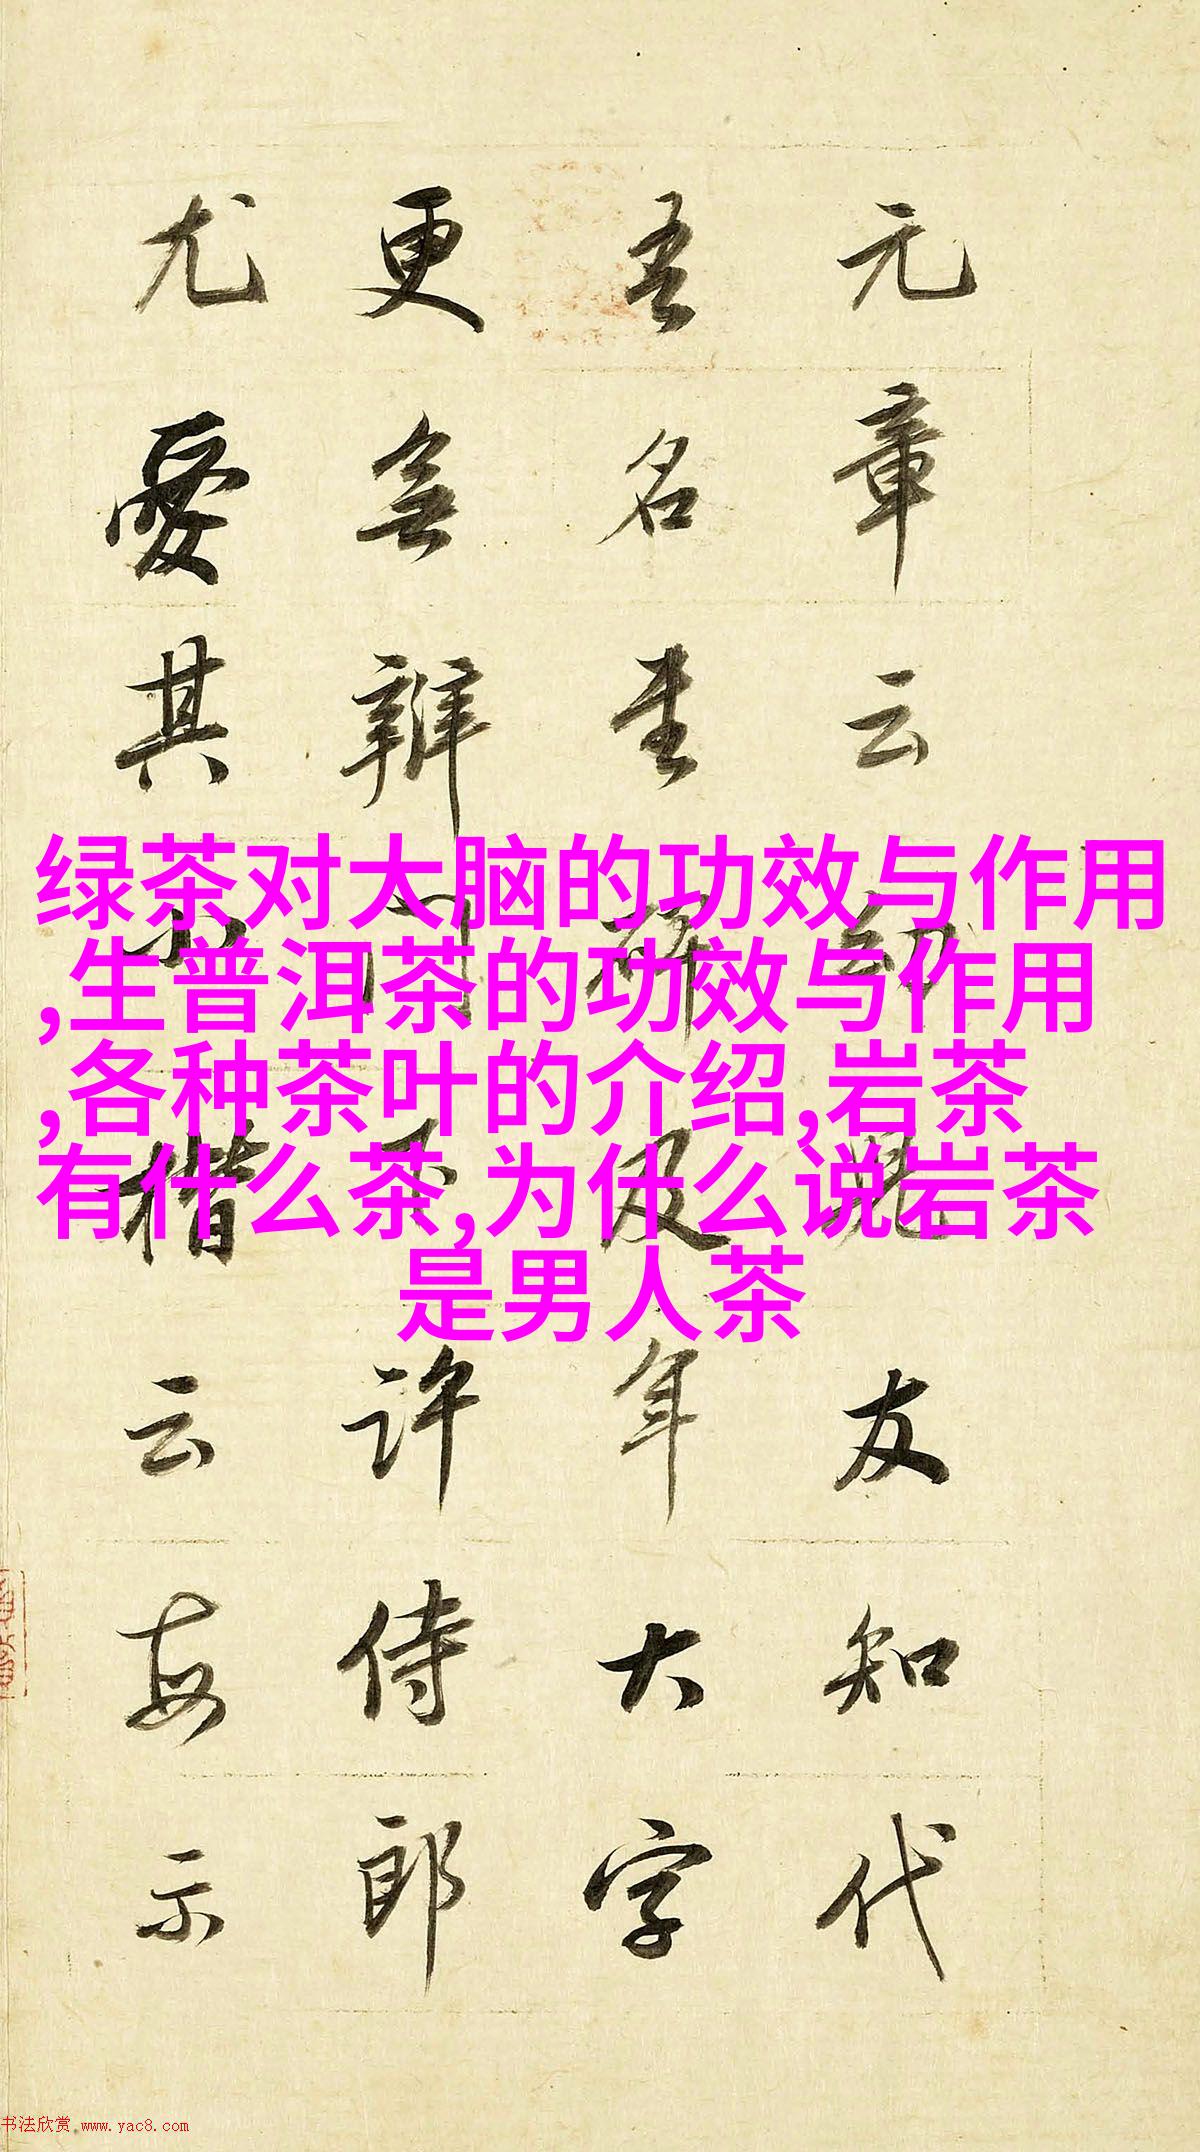 元章云幼兒友知代
吾名書碑及年大字
更無辨門下許侍郎
尤愛其小楷云每示
绿茶对大脑的功效与作用
,生普洱茶的功效与作用
,各种茶叶的介绍,岩茶
有什么茶,为什么说岩茶
是男人茶
书法欣赏.www.yac8.com